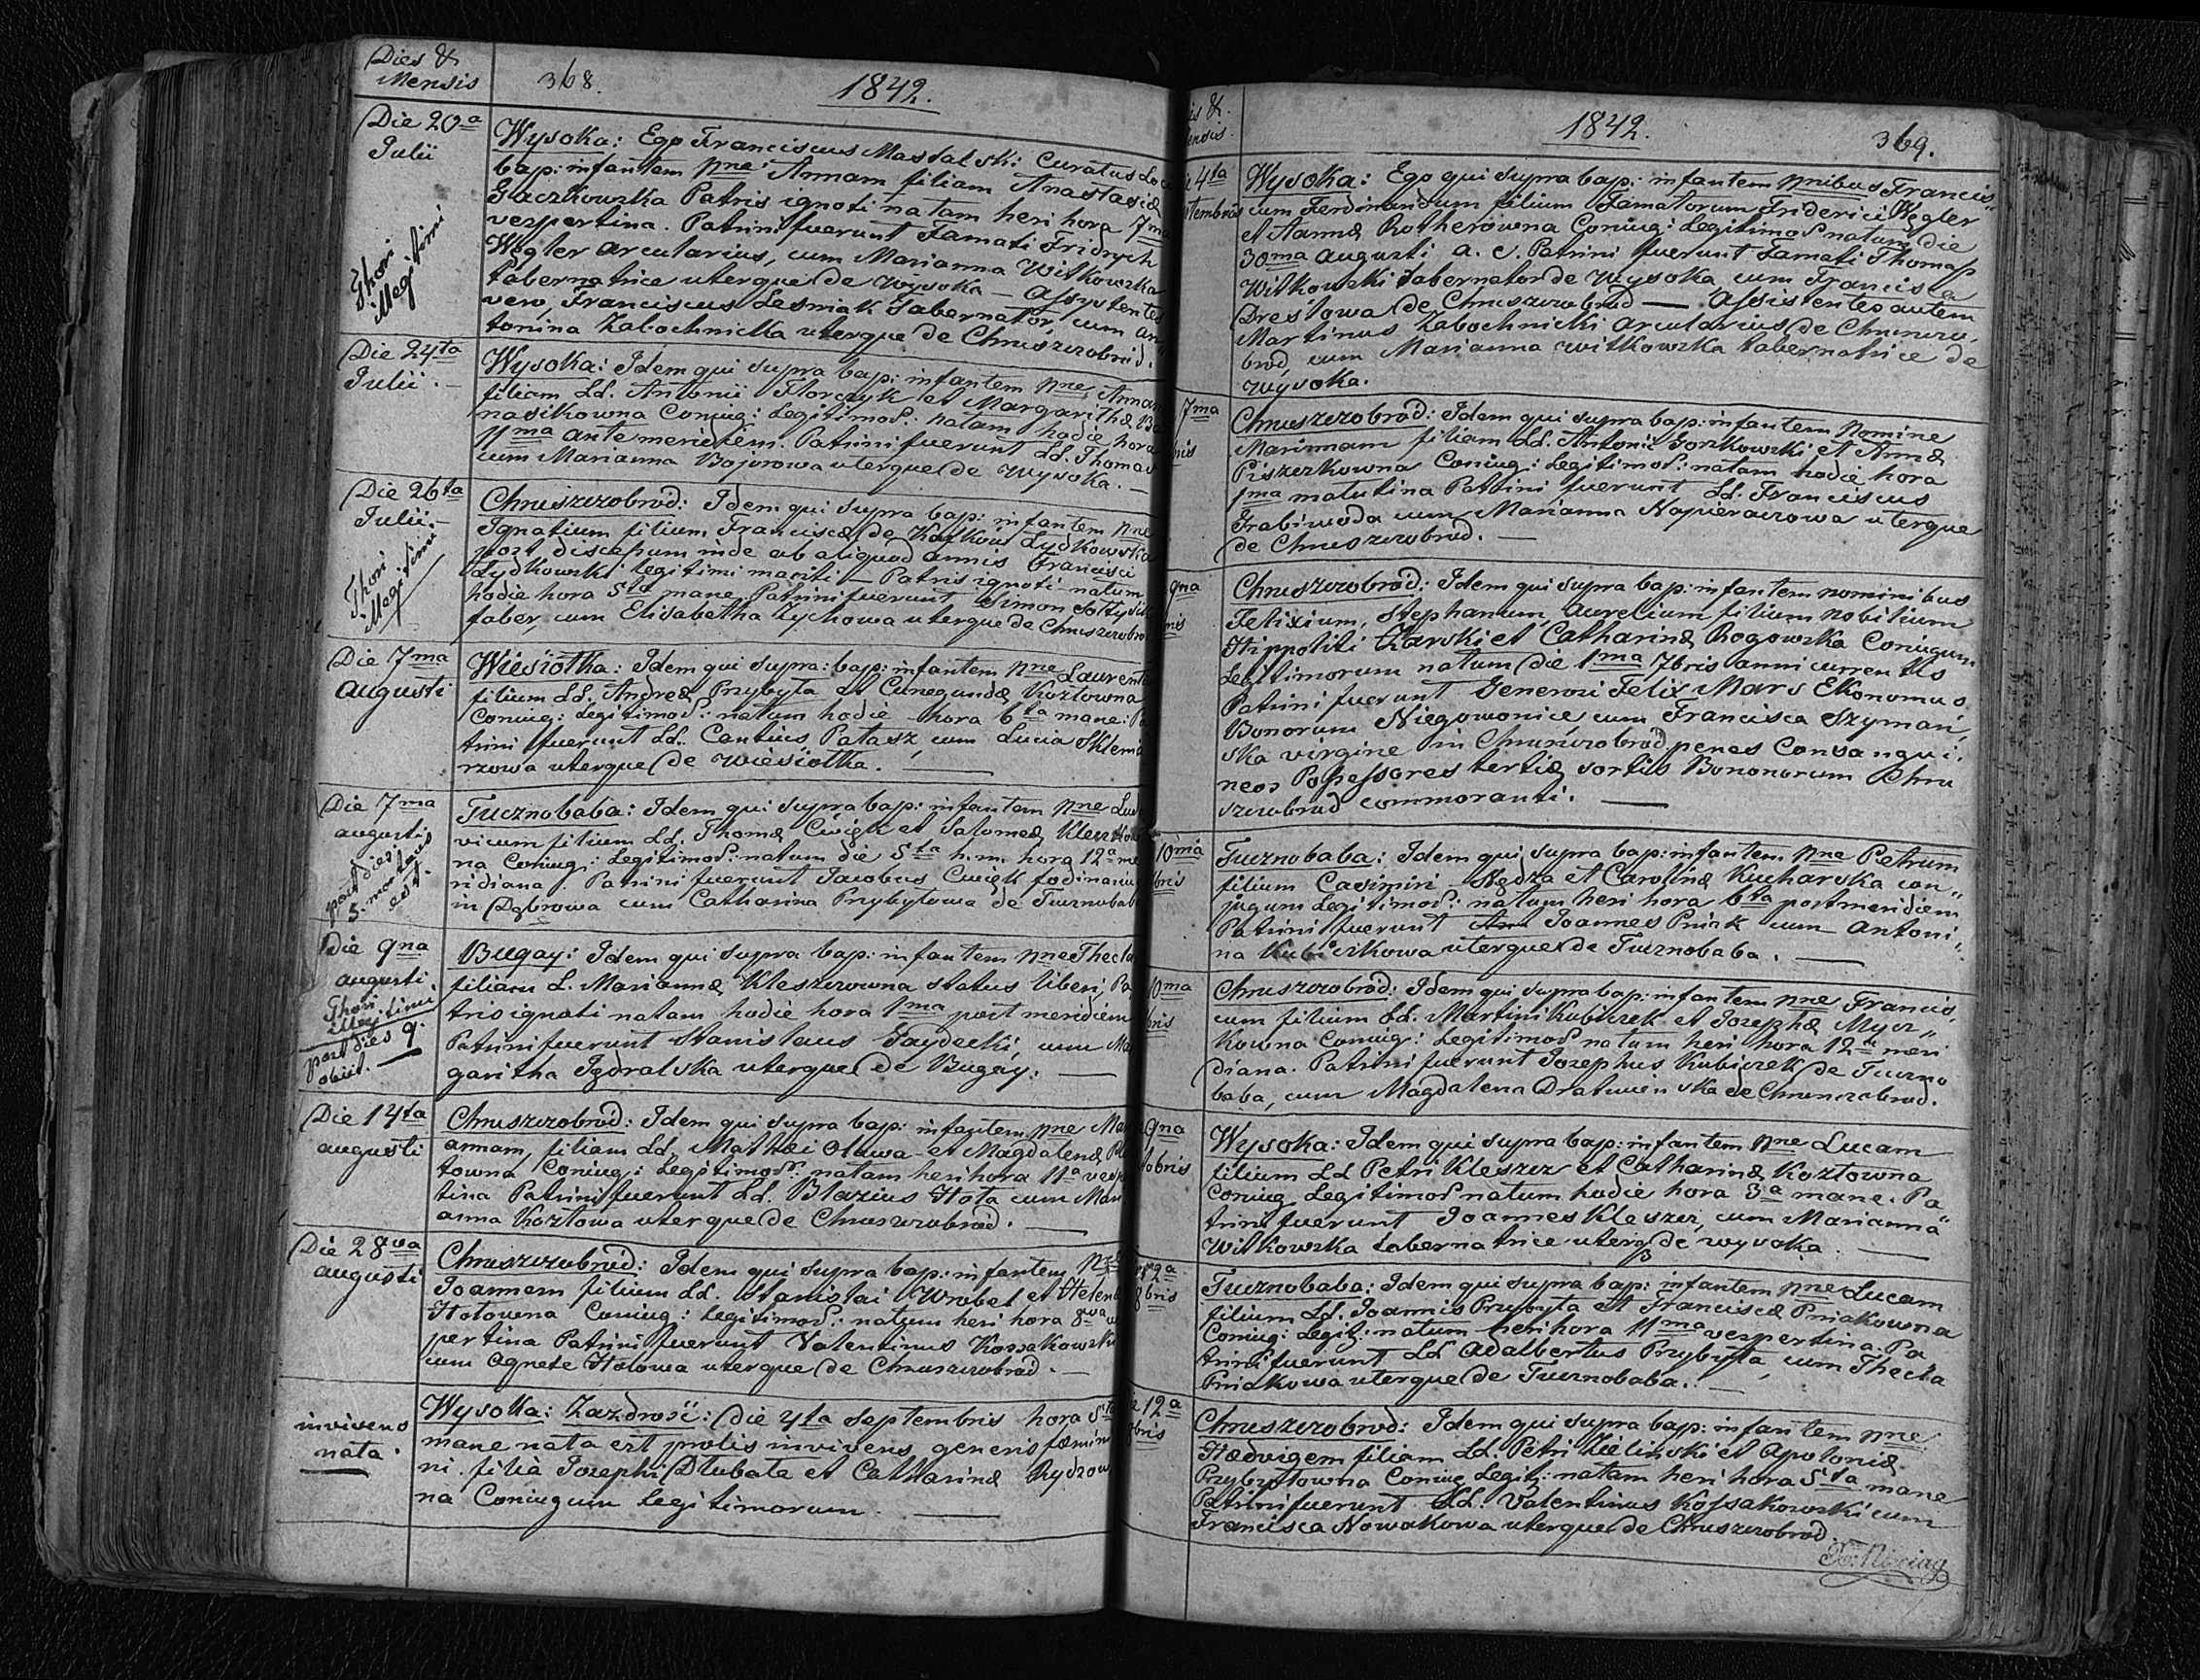 Dies &
Mensis
368.
1842.
Die 20a
Julii
Thori
illegitimi
Wysoka: Ego Franciscus Mastalski Curatus Loci
bap: infantem nne Annam filiam Anastasiæ
Gaczkowska Patris ignoti natam heri hora 7ma
vespertina. Patrini fuerunt Famati Fridrych
Wegler arcularius, cum Marianna Witkowska
tabernatrice uterque de Wysoka — Assystentes
vero, Franciscus Lesniak Tabernator, cum An
tonina Zabochnicka uterque de Chruszczobrod.
Die 24ta
Julii.
Wysoka: Idem qui supra bap: infantem nne Annam
filiam LL. Antonii Florczyk et Margarithæ Ba
nasikowna Coniug: Legitimor: natam hodie hora
11ma ante meridiem. Patrini fuerunt LL. Thomas
cum Marianna Bojorowa uterque de Wysoka. —
Die 26ta
Julii.
Thori
illegitimi
Chruszczobrod: Idem qui supra bap: infantem nne
Ignatium filium Franciscæ de Lydkowska
post discessum inde ab aliquod annis Francisci
Lydkowski legitimi mariti — Patris ignoti — natum
hodie hora 5ta mane. Patrini fuerunt Simon Soltysik
faber, cum Elisabetha Zychowa uterque de Chruszczobrod
Die 7ma
augusti
Wiesiotka: Idem qui supra: bap: infantem nne Laurenti
filium LL. Andreæ Przybyła et Cunegundæ Kozłowna
Coniug: Legitimor: natum hodie hora 6ta mane: Pa
trini fuerunt LL. Cantius Patasz, cum Lucia Sklenia
rzowa uterque de Wiesiotka. —
Die 7ma
augusti
post dies
5. mortuus
est.
Tucznobaba: Idem qui supra bap: infantem nne Ludo
vicum filium LL. Thomæ Cwięk et Salomeæ
na Coniug: Legitimor: natum die 5ta h.m. hora 12a me
ridiana. Patrini fuerunt Jacobus Cwięk fodinarius
in Dąbrowa cum Catharina Przybyłowa de Tucznobaba
Die 9na
augusti.
Thori
illegitimi
post dies 9.
obiit. —
Bugay: Idem qui supra bap: infantem nne Thecla
filiam L. Mariannæ Kleszczowna status liberi, Pa
tris ignoti natam hodie hora 1ma post meridiem
Patrini fuerunt Stanislaus Gaydecki, cum Mar
garitha Jgdralska uterque de Bugay. —
Die 14ta
augusti
Chruszczobrod: Idem qui supra bap: infantem nne Mari
annam, filiam LL. Mathæi Oława et Magdalenæ
towna Coniug: Legitimor: natam heri hora 11a vesper
tina Patrini fuerunt LL. Blazius Hota cum Mari
anna Kozłowa uterque de Chruszczobrod. —
Die 28va
augusti
Chruszczobrod: Idem qui supra bap: infantem nne
Joannem filium LL. Stanislai Wrobel et Helenæ
Hotowna Coniug: Legitimor: natum heri hora 8va ves
pertina Patrini fuerunt Valentinus Kossakowski
cum Agnete Hotowa uterque de Chruszczobrod. —
invivens
nata.
Wysoka: Zazdrość: Die 4ta Septembris hora 5ta
mane nata est prolis invivens generis fæmini
ni. filia Josephi Dłubała et Catharinæ Rydzow
na Coniugum legitimorum. —
1842.
369.
4ta
tembris
Wysoka: Ego qui supra bap: infantem nnibus Francis„
cum Ferdinandum filium Famatorum Friderici Wegler
et Annæ Rotherowna Coniug: Legitimor natum die
30ma augusti a. c. Patrini fuerunt Famati Thomas
Witkowski tabernator de Wysoka cum Francisca
Dresłowa de Chruszczobrod — Assistentes autem
Martinus Zabochnicki arcularius de Chruszczo„
brod, cum Marianna Witkowska tabernatrice de
Wysoka.
7ma
bris
Chruszczobrod: Idem qui supra bap: infantem Nomine
Mariannam filiam LL. Antonii Gorzkowski et Annæ
Piszczkowna Coniug: Legitimor: natam hodie hora
1ma matutina Patrini fuerunt LL. Franciscus
Grabiwoda cum Marianna Napieraczowa uterque
de Chruszczobrod. —
9na
bris
Chruszczobrod: Idem qui supra bap: infantem nominibus
Felixium, Stephanum, Aurelium filium Nobilium
Hippoliti et Catharinæ Rogowska Coniugum
Legitimorum natum die 1ma 7bris anni currentis
Patrini fuerunt Generosi Felix Mars Ekonomus
Bonorum Niegowonice, cum Francisca Szymań„
ska virgine in Chruszczobrod penes Consangui„
neos Possessores tertiæ sortis Bononorum Chru
szczobrod commoranti. —
10ma
bris
Tucznobaba: Idem qui supra bap: infantem nne Petrum
filium Casimiri Nędza et Carolinæ Kucharska con„
jugum Legitimor: natum heri hora 6ta post meridiem
Patrini fuerunt Joannes Pniak cum Antoni„
na Kubiczkowa uterque de Tucznobaba. —
10ma
bris
Chruszczobrod: Idem qui supra bap: infantem nne Francis„
cum filium LL. Martini Kubiczek et Josephæ Mysz„
kowna Coniug: Legitimor natum heri hora 12a meri
diana. Patrini fuerunt Josephus Kubiczek de Tuczno
baba, cum Magdalena Dratwienska de Chruszczobrod.
9na
tobris
Wysoka: Idem qui supra bap: infantem nne Lucam
filium LL Petri Kleszcz et Catharinæ Kozłowna
Coniug Legitimor natum hodie hora 3a mane. Pa„
trini fuerunt Joannes Kleszcz, cum Marianna
Witkowska tabernatrice uterq de Wysoka. —
8bris
Tucznobaba: Idem qui supra bap: infantem nne Lucam
filium LL. Joannis Przybyła et Franciscæ Pniakowna
Coniug: Legit: natum heri hora 11ma vespertina. Pa
trini fuerunt LL Adalbertus Przybyła, cum Thecla
Pniakowa uterque de Tucznobaba. —
12a
8bris
Chruszczobrod: Idem qui supra bap: infantem nne
Hædvigem filiam LL. Petri Zieliński et Apoloniæ
Przybyłowna Coniug Legit: natam heri hora 5ta mane
Patrini fuerunt LL. Valentinus Kossakowski cum
Francisca Nowakowa uterque de Chruszczobrod.